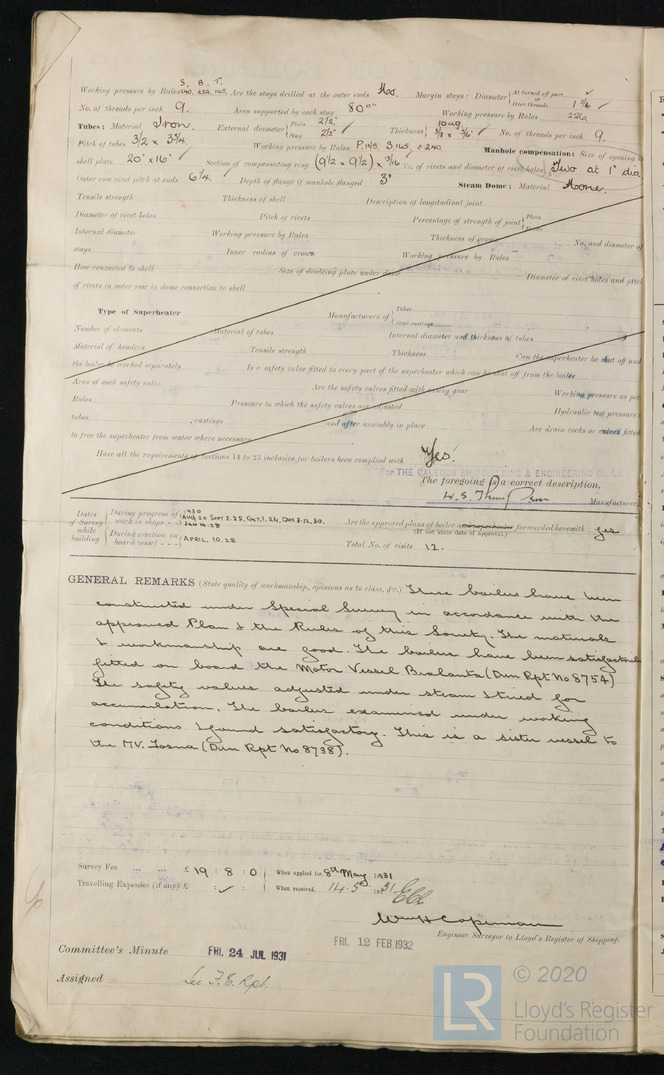 S. B. T.
Working pressure by Rules 240, 234, 165. Are the stays drilled at the outer ends No. Margin stays: Diameter { At turned off part ✓ or Over threads 1 3/4 ✓
No. of threads per inch 9. Area supported by each stay 80"" Working pressure by Rules 226.
Tubes: Material Iron. External diameter { Plain 2 1/2" Stay 2 1/2" ✓ Thickness { 10 W.G. No. of threads per inch 9.
Pitch of tubes 3 1/2 x 3 3/4 Working pressure by Rules P.145. S.165. Manhole compensation: Size of opening in
shell plate 20" x 16" ✓ Section of compensating ring (9 1/2 x 9 1/2) x No. of rivets and diameter of rivet holes Two at 1" dia
Outer row rivet pitch at ends 6 1/4. ✓ Depth of flange if manhole flanged 3" Steam Dome: Material None.
Tensile strength Thickness of shell Description of longitudinal joint
Diameter of rivet holes Pitch of rivets Percentage of strength of joint { Plate Rivets
Internal diameter Working pressure by Rules Thickness of crown No. and diameter of
stays Inner radius of crown Working pressure by Rules
How connected to shell Size of doubling plate under dome Diameter of rivet holes and pitch
of rivets in outer row in dome connection to shell
Type of Superheater Manufacturers of { Tubes Steel castings
Number of elements Material of tubes Internal diameter and thickness of tubes
Material of headers Tensile strength Thickness Can the superheater be shut off and
the boiler be worked separately Is a safety valve fitted to every part of the superheater which can be shut off from the boiler
Area of each safety valve Are the safety valves fitted with easing gear Working pressure as per
Rules Pressure to which the safety valves are adjusted Hydraulic test pressure:
tubes , castings and after assembly in place Are drain cocks or valves fitted
to free the superheater from water where necessary
Have all the requirements of Sections 14 to 23 inclusive for boilers been complied with Yes.
For THE CALEDON SHIPBUILDING & ENGINEERING Co. Ld.
The foregoing is a correct description,
Manufacturer.
Dates of Survey while building { During progress of work in shops - - 1930 AUG. 20 SEPT. 2. 25, OCT. 1. 24, DEC. 8. 12. 30. JAN 14. 28 Are the approved plans of boiler and superheater forwarded herewith yes
During erection on board vessel - - - APRIL. 10. 28 (If not state date of approval.)
Total No. of visits 12.
GENERAL REMARKS (State quality of workmanship, opinions as to class, &c.) These boilers have been
constructed under Special Survey in accordance with the
approved Plan & the Rules of this Society. The materials
& workmanship are good. The boilers have been satisfactorily
fitted on board the Motor Vessel Bralanta (Dun Rpt No 8754)
The safety valves adjusted under steam & tried for
accumulation. The boilers examined under working
conditions & found satisfactory. This is a sister vessel to
the MV. Tosna (Dun Rpt No 8738).
Survey Fee ... ... £ 19 : 8 : 0 } When applied for, 8th May 1931
Travelling Expenses (if any) £ : ✓ : } When received, 14. 5 1931
Wm H Copeman
Engineer Surveyor to Lloyd's Register of Shipping.
FRI. 12 FEB 1932
Committee's Minute FRI. 24 JUL 1931
Assigned See F.E. Rpt.
LR © 2020
Lloyd's Register
Foundation